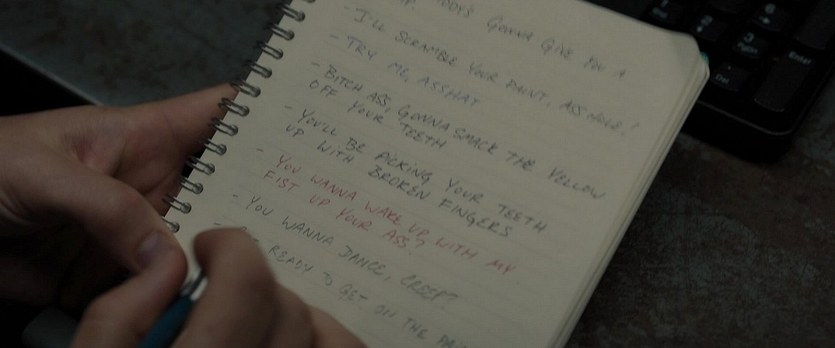 GONNA GIVE YOU A
- I'LL SCRAMBLE YOUR PAINT, ASSHOLE!
- TRY ME, ASSHAT
- BITCH ASS, GONNA SMACK THE YELLOW
OFF YOUR TEETH
- YOU'LL BE PICKING YOUR TEETH
UP WITH BROKEN FINGERS
- YOU WANNA WAKE UP WITH MY
FIST UP YOUR ASS?
- YOU WANNA DANCE, CREEP?
READY TO GET ON THE
Enter
Del